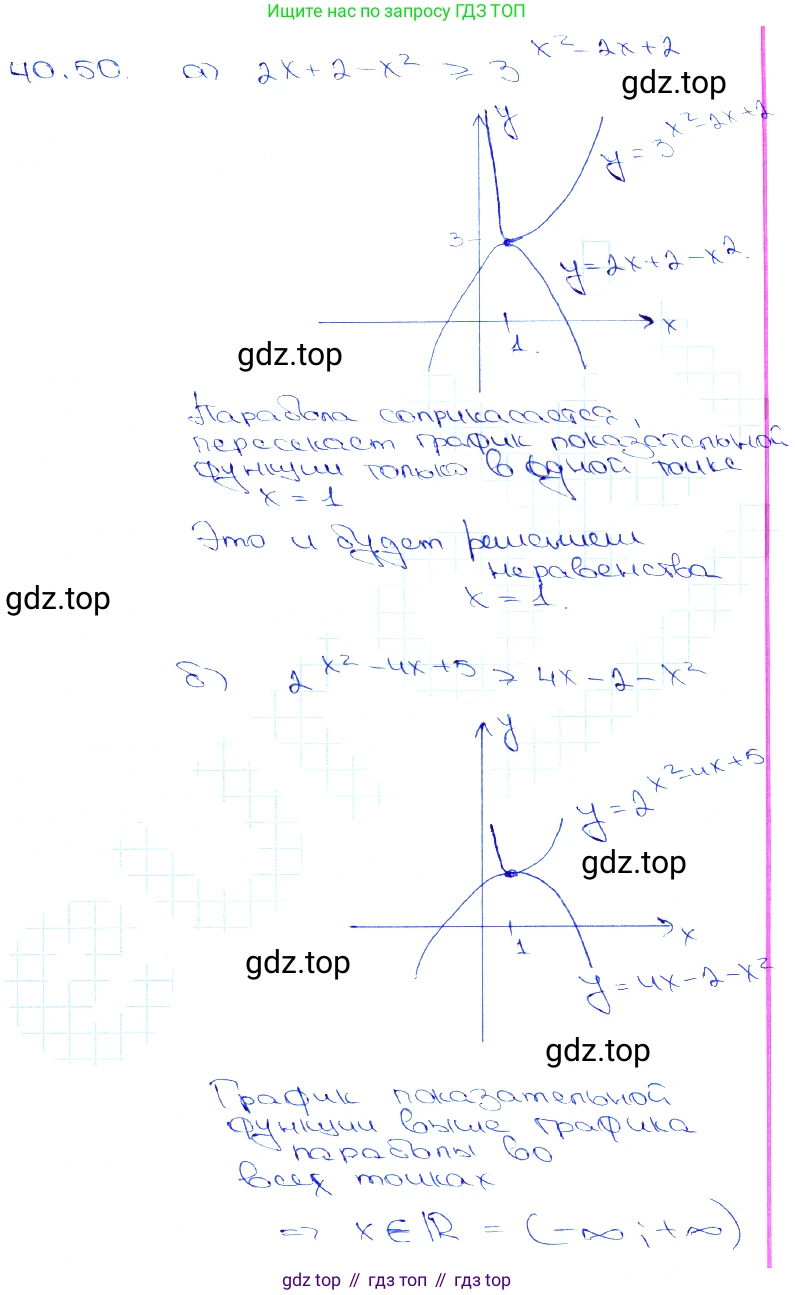 Ищите нас по запросу ГДЗ ТОП
40.50. а) 2x+2-x² ≥ 3^{x²-2x+2}
gdz.top
y
y=3^{x²-2x+2}
3
y=2x+2-x².
x
1.
gdz.top
Парабола соприкасается,
пересекает график показательной
функции только в одной точке
x = 1
Это и будет решением
неравенства
gdz.top
x = 1.
б) 2^{x²-4x+5} ≥ 4x-2-x²
y
y=2^{x²-4x+5}
gdz.top
x
1
gdz.top
y=4x-2-x²
gdz.top
График показательной
функции выше графика
параболы во
всех точках
=> x∈R = (-∞;+∞)
gdz top // гдз топ // gdz top